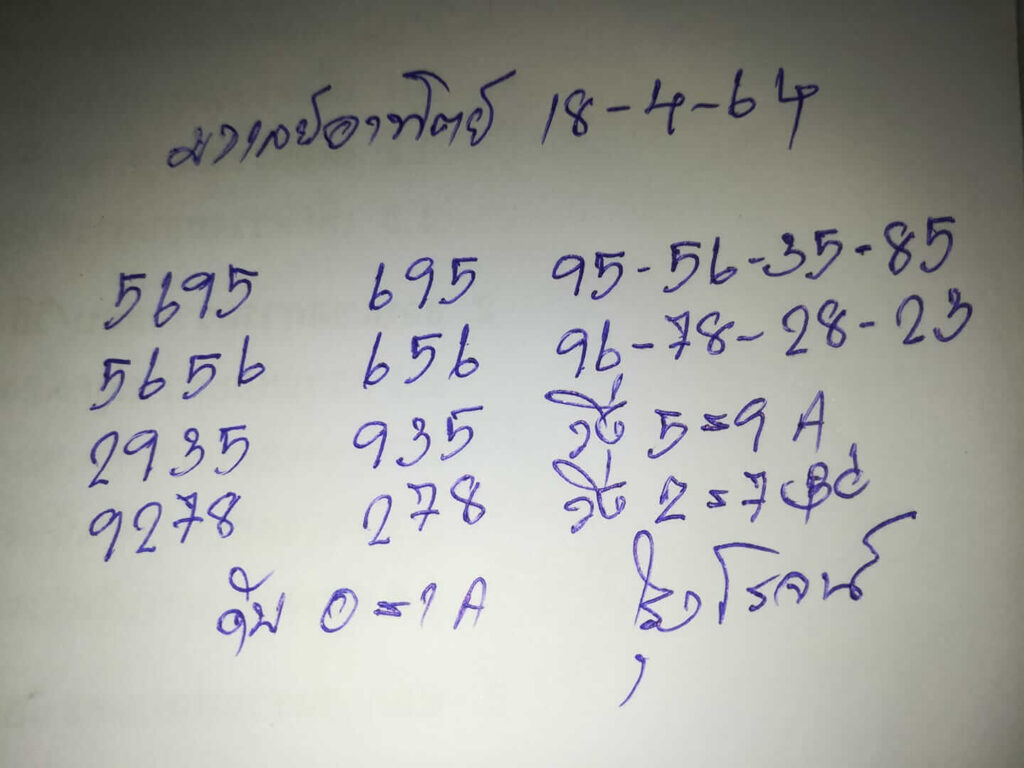 มาเลย์อาทิตย์ 18-4-64
5695 695 95-56-35-85
5656 656 96-78-28-23
2935 935 วิ่ง 5=9 A
9278 278 วิ่ง 2=7
ดับ 0=1 A รุ่งโรจน์